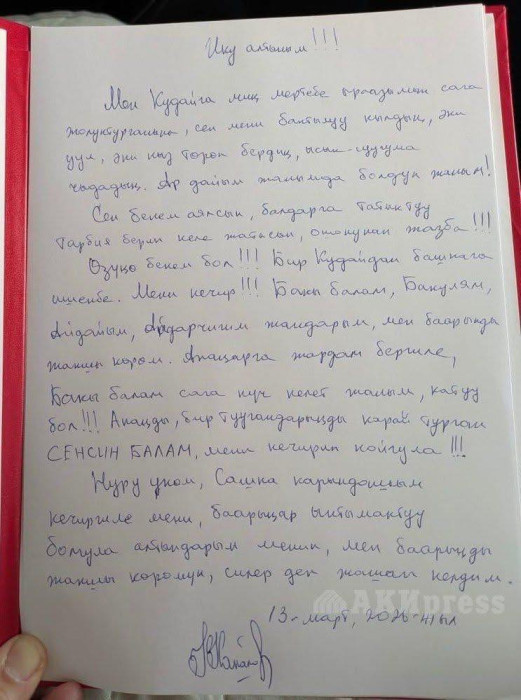 Ику алтыным!!!
Мен Кудайга миң мертебе ыраазымын сага
жолуктурганына, сен мени бактылуу кылдың, эки
уул, эки кыз төрөп бердиң, ысык-суугума
чыдадың. Ар дайым жанымда болдуң жаным!
Сен бекем аялсың, балдарга татыктуу
тарбия берип келе жатысың, ошонуңан жазба!!!
Өзүңө бекем бол!!! Бир Кудайдан башкага
ишенбе. Мени кечир!!! Бакы балам, Бакулям,
Айдайым, Айдарчигим жандарым, мен баарыңды
жакшы көрөм. Апаңарга жардам бергиле,
Бакы балам сага күч келет жаным, катуу
бол!!! Апаңды, бир туугандарыңды карай турган
СЕНСИҢ БАЛАМ, мени кечирип койгула!!!
Нуру укем, Сашка карындашым
кечиргиле мени, баарыңар ынтымактуу
болгула алтындарым менин, мен баарыңды
жакшы көрөмүн, силер деп жашап келдим.
13-март, 2026-жыл
АКИpress